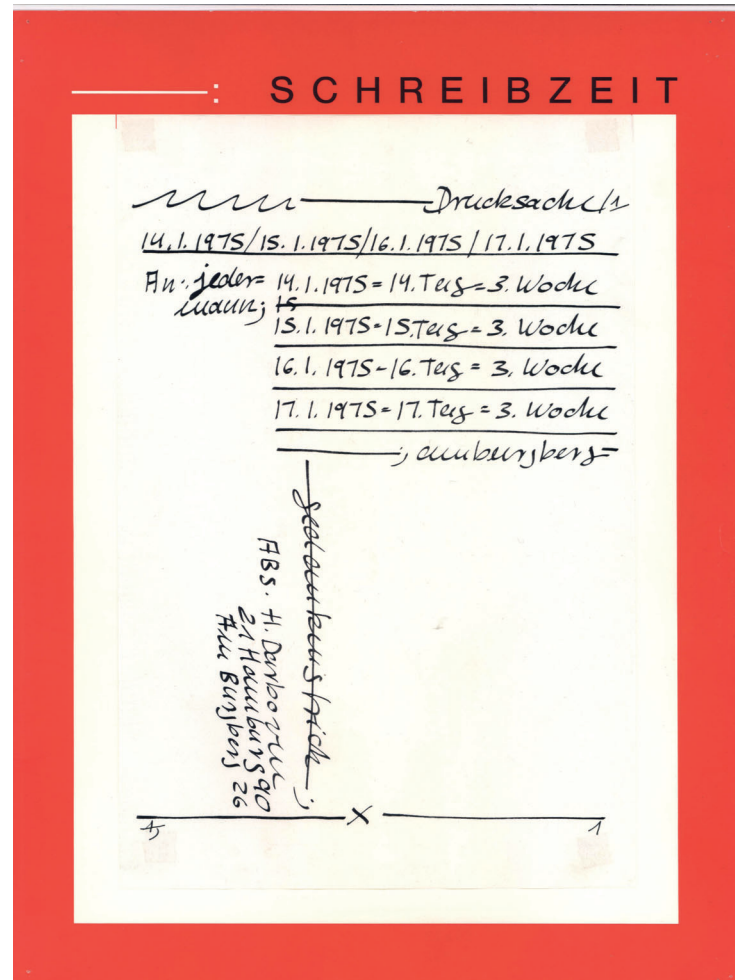 : SCHREIBZEIT
Drucksache/1
14.1.1975/15.1.1975/16.1.1975/17.1.1975
An: jeder=
mann;
14.1.1975=14.Tag=3.Woche
15
15.1.1975=15.Tag=3.Woche
16.1.1975=16.Tag=3.Woche
17.1.1975=17.Tag=3.Woche
; amburgberg=
gedankenstrich;
ABS. H. Darboven
21 Hamburg 90
Am Burgberg 26
X
1